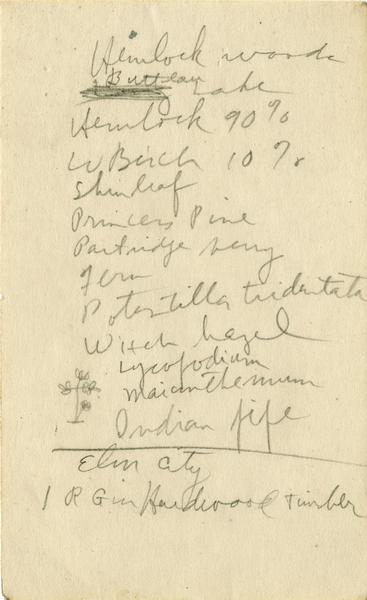 Hemlock woods
Lake
Hemlock 90%
W Birch 10%
Shinleaf
Princess Pine
Partridge berry
Fern
Potentilla tridentata
Witch hazel
Lycopodium
Maianthemum
Indian pipe
Elm City
1 R Hardwood Timber